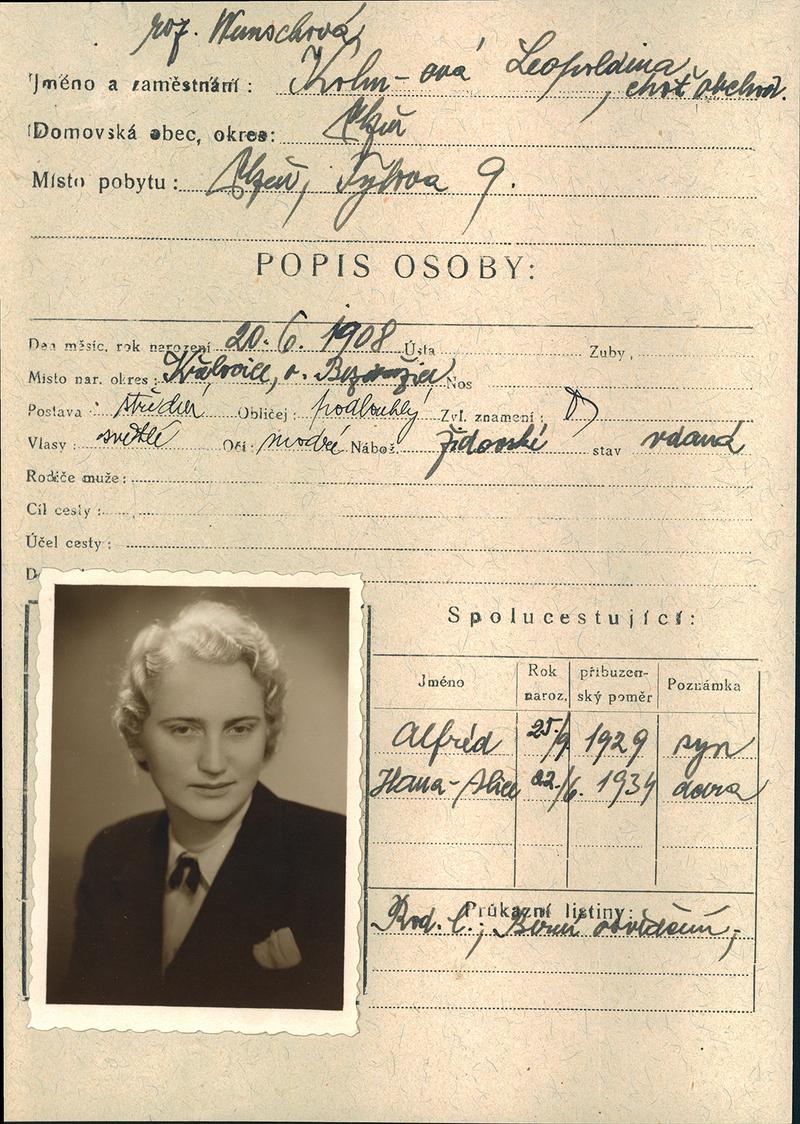 roz. Wunschová
Jméno a zaměstnání: Kohn-ová Leopoldina, choť obchod.
Domovská obec, okres: Plzeň
Místo pobytu: Plzeň, Tylova 9.
POPIS OSOBY:
Den měsíc, rok narození 20. 6. 1908 Ústa Zuby
Místo nar. okres: o. Nos
Postava: střední Obličej: podlouhlý Zvl. znamení:
Vlasy: světlé Oči: modré Nábož. židovské stav vdaná
Rodiče muže:
Cíl cesty:
Účel cesty:
Spolucestující:
Jméno Rok naroz. příbuzenský poměr Poznámka
Alfréd 25/9 1929 syn
Hana-Alice 22./6. 1934 dcera
Průkazní listiny:
Rod. l.;